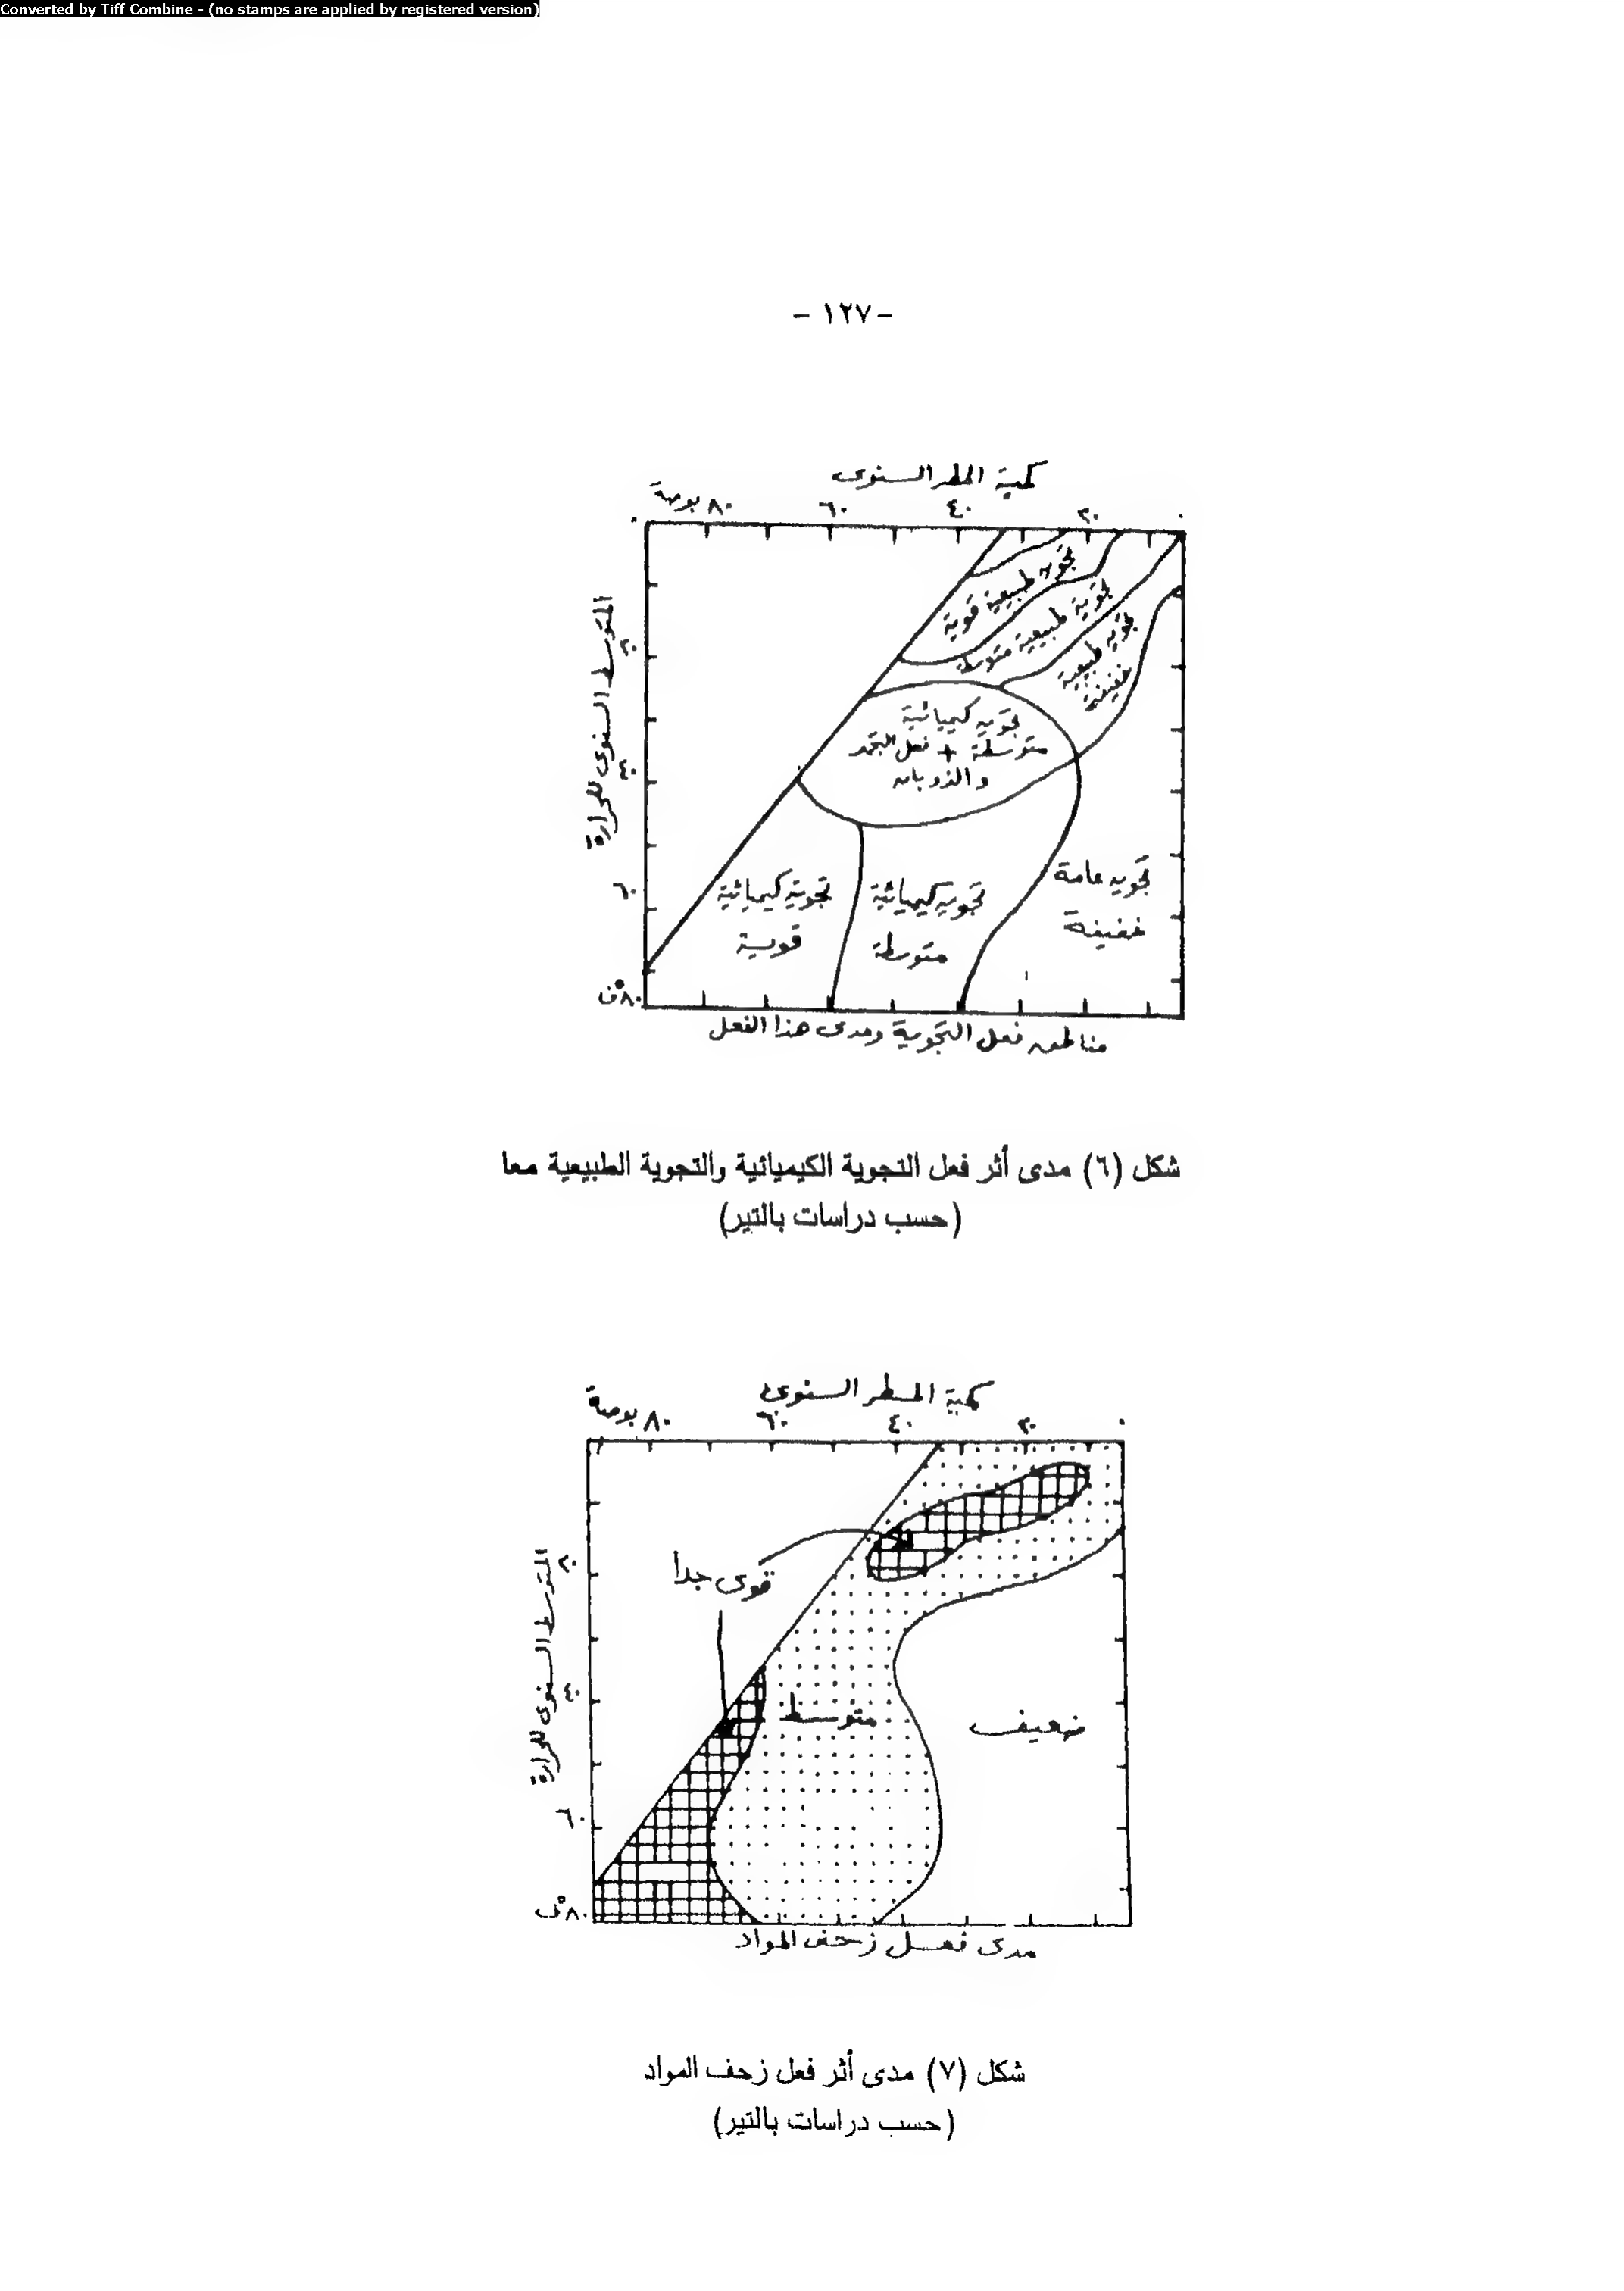 Converted by Tiff Combine - (no stamps are applied by registered version)
- ١٢٧ -
كمية المطر السنوى
٠ ٢٠ ٤٠ ٦٠ ٨٠ بوصة
٠
المتوسط السنوى للحرارة
٢٠
٤٠
٦٠
٨٠°ف
تجويه طبيعية قوية
تجوية طبيعية متوسطة
تجويه طبيعية
خفيفة
تجويه كيميائية
متوسطة + فعل التجمد
والذوبان
تجوية كيميائية
قوية
تجويه كيميائية
متوسطة
تجويه عامة
خفيفة
مناطق فعل التجوية ومدى هذا الفعل
شكل (٦) مدى أثر فعل التجوية الكيميائية والتجوية الطبيعية معا
(حسب دراسات بالتير)
كمية المطر السنوى
٠ ٢٠ ٤٠ ٦٠ ٨٠ بوصة
المتوسط السنوى للحرارة
٢٠
٤٠
٦٠
٨٠°ف
قوى جدا
متوسط
ضعيف
مدى فعل زحف المواد
شكل (٧) مدى أثر فعل زحف المواد
(حسب دراسات بالتير)